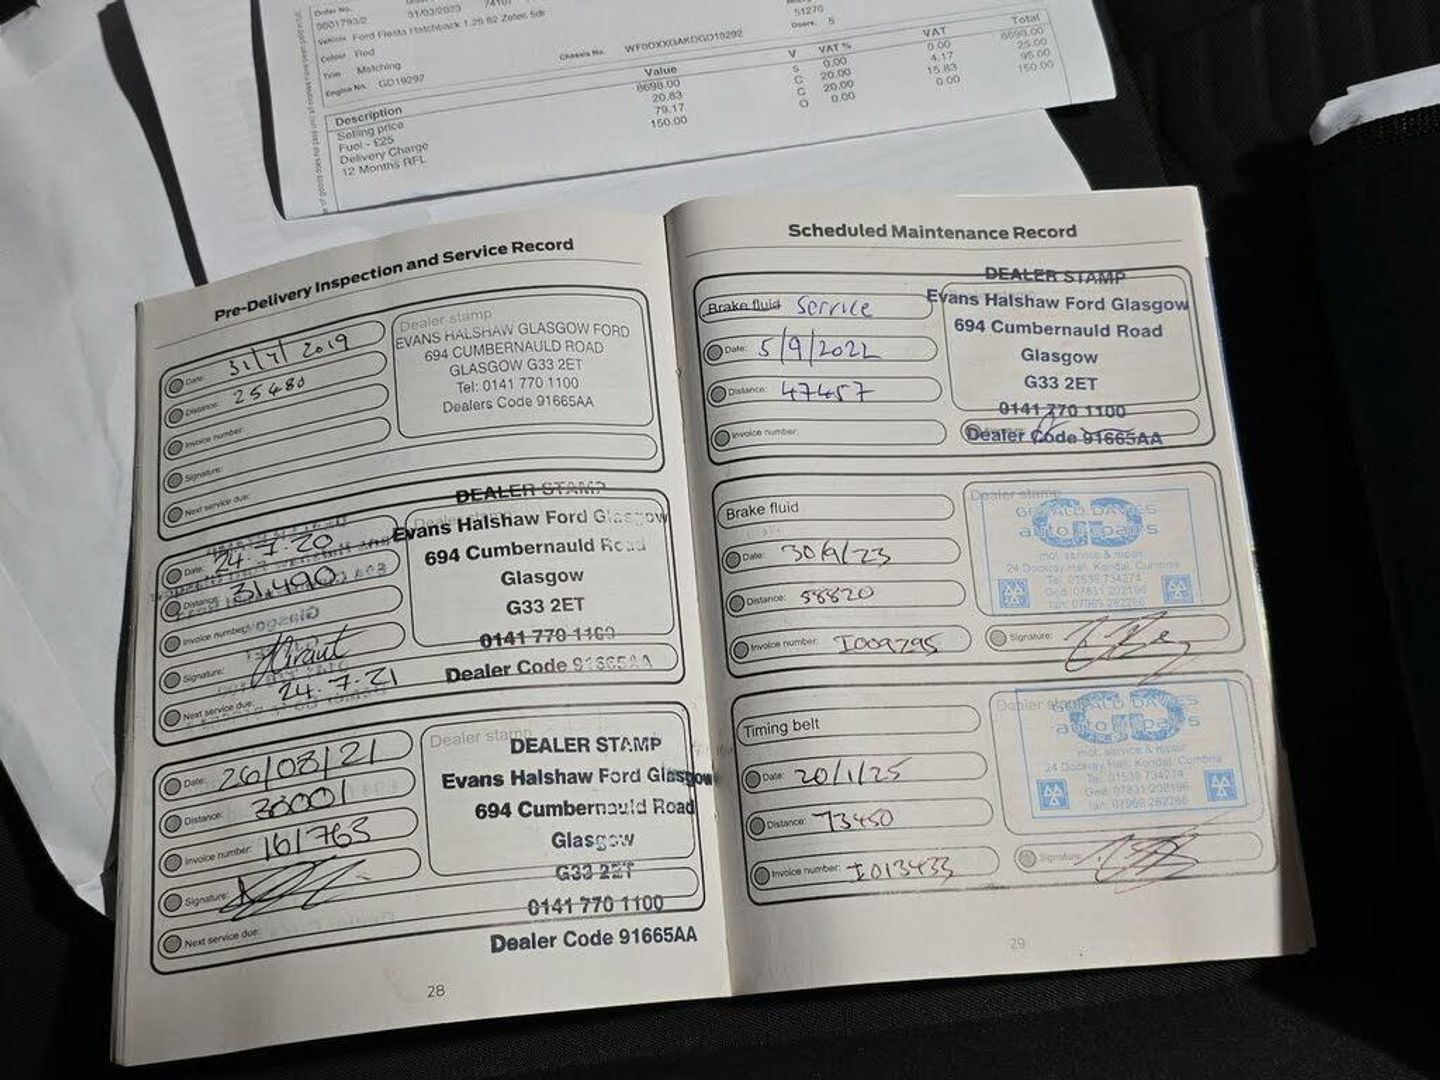 Order No.
31/03/2023
Vehicle Ford Fiesta Hatchback 1.25 82 Zetec 5dr
51270
Colour Red
Doors 5
Trim Matching
Chassis No.
Engine No. GD19292
Description Value V VAT % VAT Total
Selling price 8698.00 S 0.00 0.00 8698.00
Fuel - £25 20.83 C 20.00 4.17 25.00
Delivery Charge 79.17 C 20.00 15.83 95.00
12 Months RFL 150.00 O 0.00 0.00 150.00
Pre-Delivery Inspection and Service Record
Date: 31/7/2019
Distance: 25480
Invoice number:
Signature:
Next service due:
Dealer stamp
EVANS HALSHAW GLASGOW FORD
694 CUMBERNAULD ROAD
GLASGOW G33 2ET
Tel: 0141 770 1100
Dealers Code 91665AA
Date: 24.7.20
Distance: 31,490
Invoice number:
Signature: Grant
Next service due: 24.7.21
DEALER STAMP
Evans Halshaw Ford Glasgow
694 Cumbernauld Road
Glasgow
G33 2ET
0141 770 1100
Dealer Code 91665AA
Date: 26/08/21
Distance: 38001
Invoice number: 161763
Signature:
Next service due:
Dealer stamp
DEALER STAMP
Evans Halshaw Ford Glasgow
694 Cumbernauld Road
Glasgow
G33 2ET
0141 770 1100
Dealer Code 91665AA
28
Scheduled Maintenance Record
Brake fluid Service
Date: 5/9/2022
Distance: 47457
Invoice number:
DEALER STAMP
Evans Halshaw Ford Glasgow
694 Cumbernauld Road
Glasgow
G33 2ET
0141 770 1100
Dealer Code 91665AA
Brake fluid
Date: 30/9/23
Distance: 58820
Invoice number: I009795
Dealer stamp
GERALD DAVIES
auto repairs
mot, service & repair
24 Dockray Hall, Kendal, Cumbria
Tel: 01539 734274
Ged: 07831 202196
Ian: 07969 262266
Signature:
Timing belt
Date: 20/1/25
Distance: 73450
Invoice number: I013433
Dealer stamp
GERALD DAVIES
auto repairs
mot, service & repair
24 Dockray Hall, Kendal, Cumbria
Tel: 01539 734274
Ged: 07831 202196
Ian: 07969 262266
Signature:
29